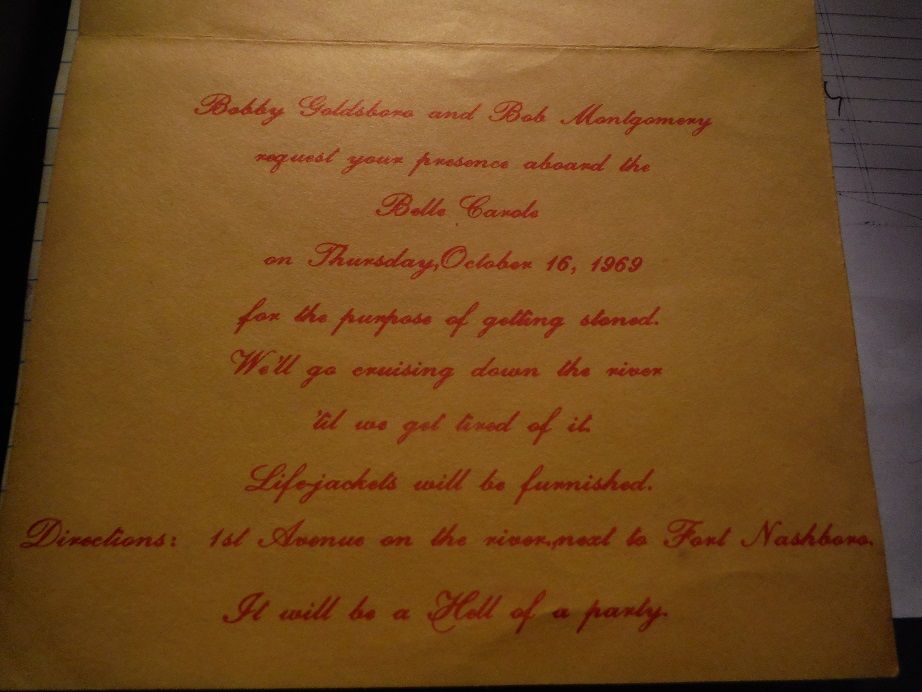 Bobby Goldsboro and Bob Montgomery
request your presence aboard the
Belle Carole
on Thursday, October 16, 1969
for the purpose of getting stoned.
We'll go cruising down the river
'til we get tired of it.
Life-jackets will be furnished.
Directions: 1st Avenue on the river, next to Fort Nashboro.
It will be a Hell of a party.